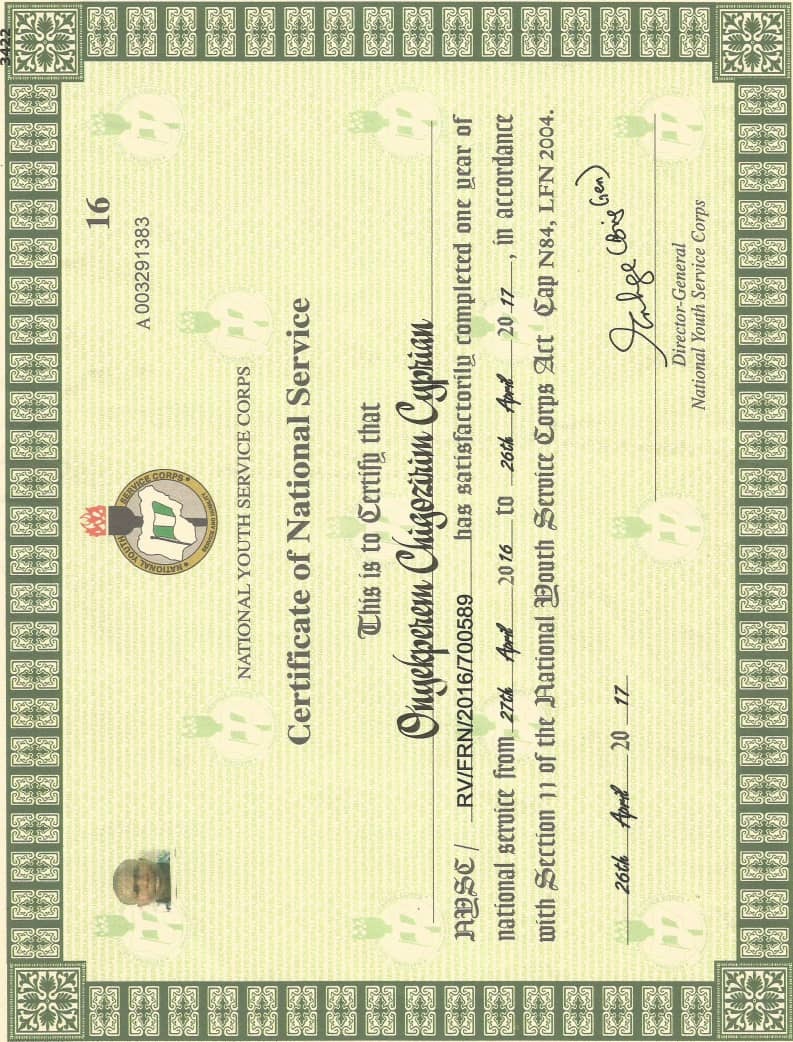 3422
16
A 003291383
NATIONAL YOUTH SERVICE CORPS
SERVICE AND HUMILITY
NATIONAL YOUTH SERVICE CORPS
Certificate of National Service
This is to Certify that
Onyekperem Chigozirim Cyprian
NYSC / RV/FRN/2016/700589 has satisfactorily completed one year of
national service from 27th April 2016 to 26th April 2017, in accordance
with Section 11 of the National Youth Service Corps Act Cap N84, LFN 2004.
26th April 2017
(Brig Gen)
Director-General
National Youth Service Corps